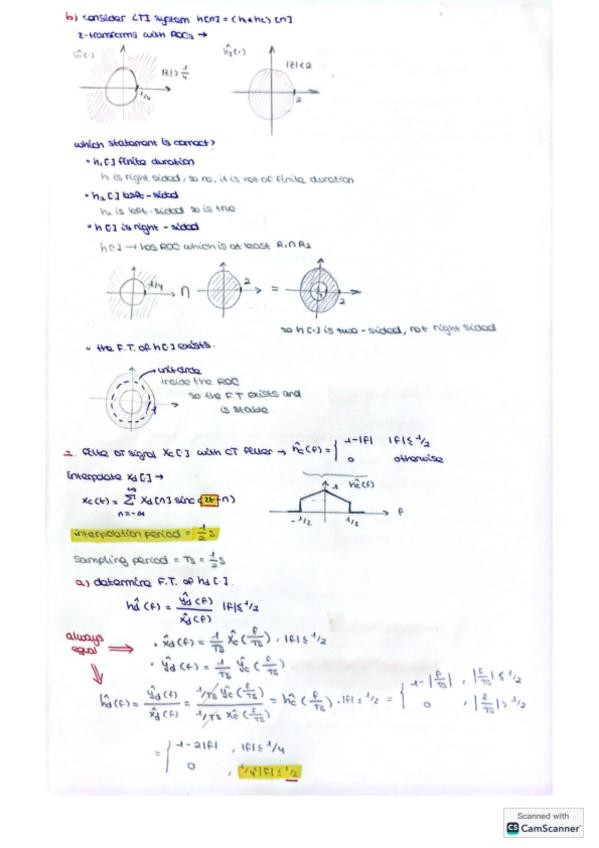 b) consider LTI system h[n] = (h₁*h₂)[n]
z-transforms with ROCs →
ĥ₁(·) |z|>1/4 1/4
ĥ₂(·) |z|<2 2
which statement is correct?
• h₁[·] finite duration
h is right sided, so no, it is not of finite duration
• h₂[·] left-sided
h₂ is left-sided so is true
• h[·] is right-sided
h[·] → has ROC which is at least R₁∩R₂
1/4 ∩ 2 = 1/4 2
so h[·] is two-sided, not right sided
• the F.T. of h[·] exists.
→unit circle
inside the ROC
so the F.T exists and
is stable.
1
2. filter DT signal xc[·] with CT filter → ĥc(f) = { 1-|f| |f|≤1/2
0 otherwise
interpolate xd[·] →
xc(t) = Σ xd[n] sinc(2t-n)
n=-∞
1 ĥc(f)
-1/2 1/2 f
interpolation period = 1/2 s
sampling period = Ts = 1/2 s
a) determine F.T. of hd[·].
ĥd(f) = ŷd(f)/x̂d(f) |f|≤1/2
always equal ⇒
• x̂d(f) = 1/Ts x̂c(f/Ts), |f|≤1/2
• ŷd(f) = 1/Ts ŷc(f/Ts)
ĥd(f) = ŷd(f)/x̂d(f) = 1/Ts ŷc(f/Ts) / 1/Ts x̂c(f/Ts) = ĥc(f/Ts), |f|≤1/2 = { 1-|f/Ts|, |f/Ts|≤1/2
0 , |f/Ts|>1/2
= { 1-2|f| , |f|≤1/4
0 , 1/4<|f|≤1/2
Scanned with
CS CamScanner